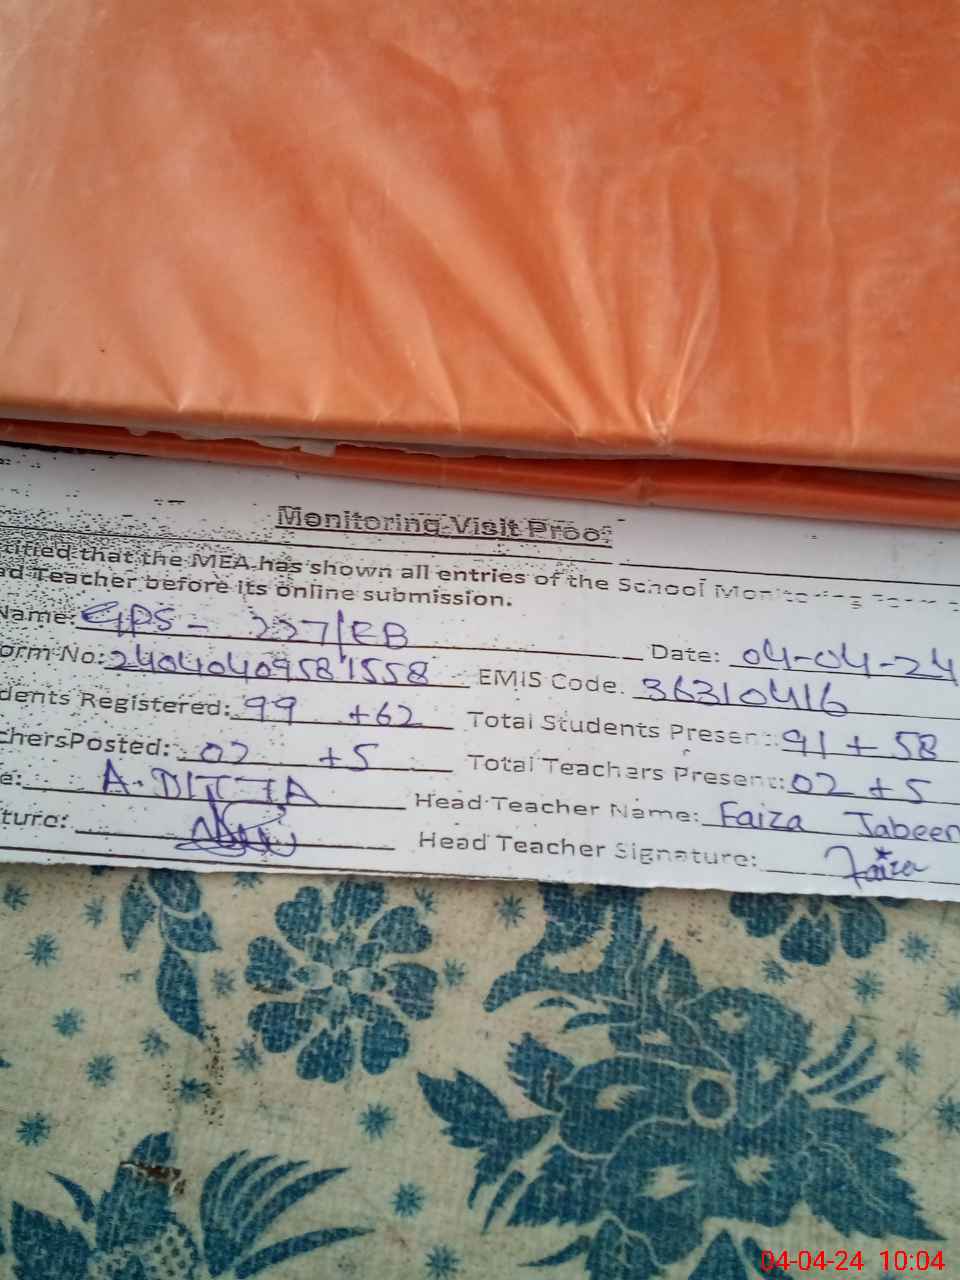 Monitoring Visit Proof
tified that the MEA has shown all entries of the School Monitoring Form
ad Teacher before its online submission.
Name: GPS - 227/EB Date: 04-04-24
orm No: 24040409581558 EMIS Code: 36310416
dents Registered: 99 +62 Total Students Present: 91 + 58
chersPosted: 02 +5 Total Teachers Present: 02 + 5
e: A. DITTA Head Teacher Name: Faiza Jabeen
ture: Head Teacher Signature: Faiza
04-04-24 10:04